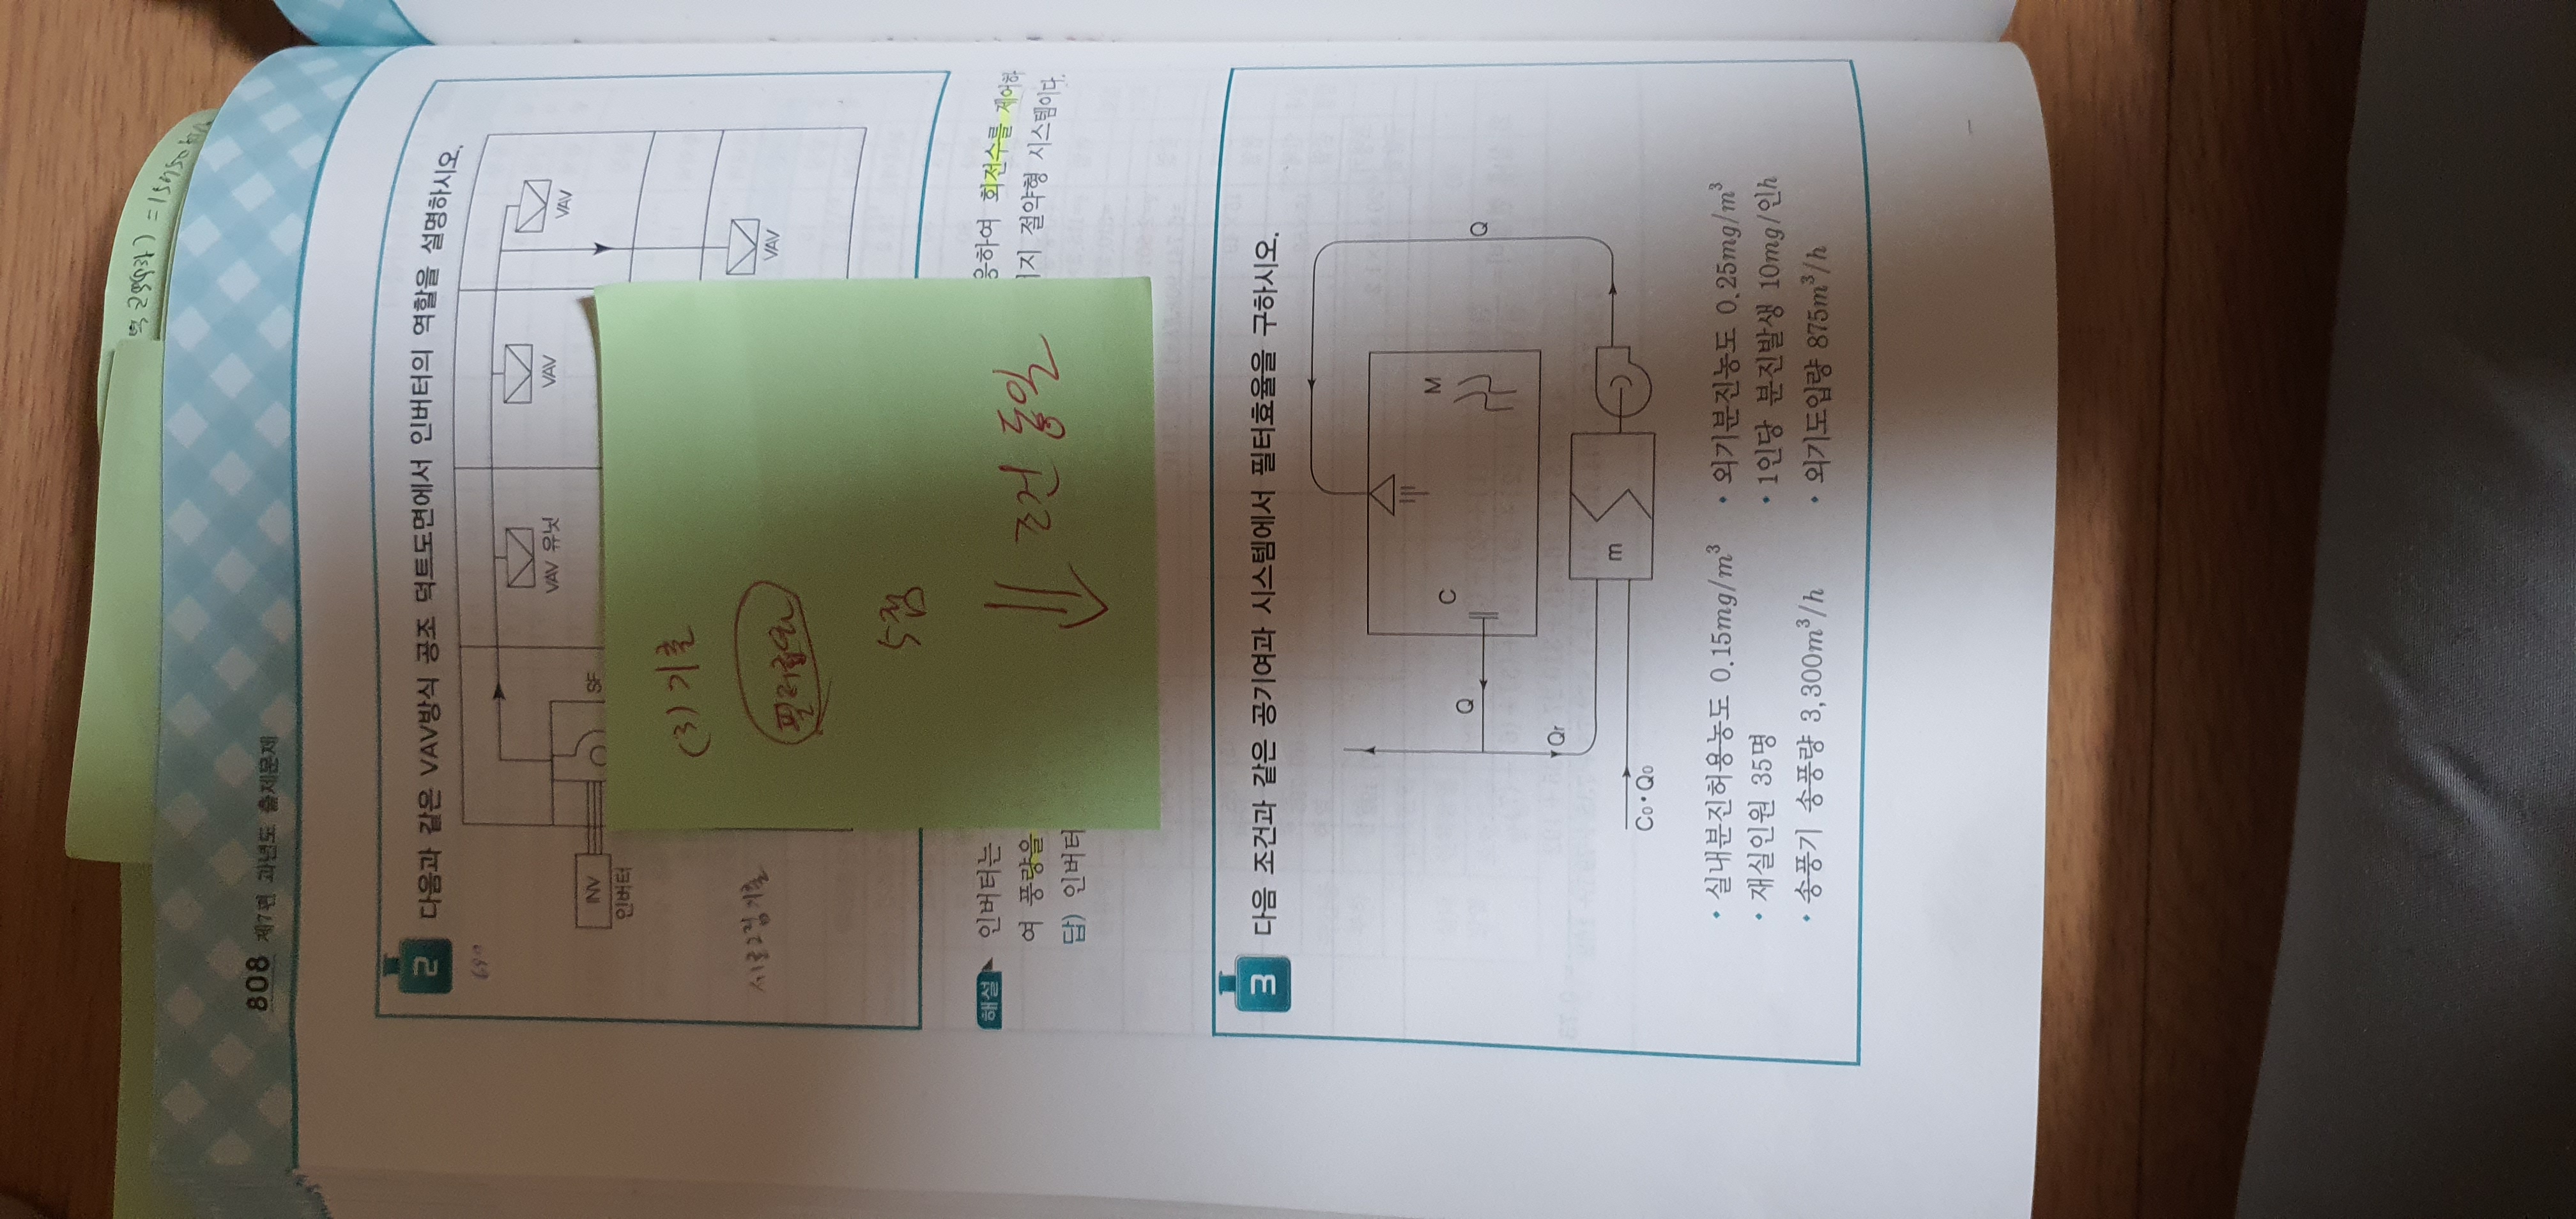 808 제7편 과년도 출제문제
2 다음과 같은 VAV방식 공조 덕트도면에서 인버터의 역할을 설명하시오.
VAV 유닛
VAV
VAV
VAV
SF
INV
인버터
(3) 기출
필러요약
5점
조건 동일
해설 인버터는
응하여 회전수를 제어하
여 풍량을
지 절약형 시스템이다.
답) 인버터
3 다음 조건과 같은 공기여과 시스템에서 필터효율을 구하시오.
C
M
Q
Q
Qr
m
C₀·Q₀
• 실내분진허용농도 0.15mg/m³
• 외기분진농도 0.25mg/m³
• 재실인원 35명
• 1인당 분진발생 10mg/인h
• 송풍기 송풍량 3,300m³/h
• 외기도입량 875m³/h